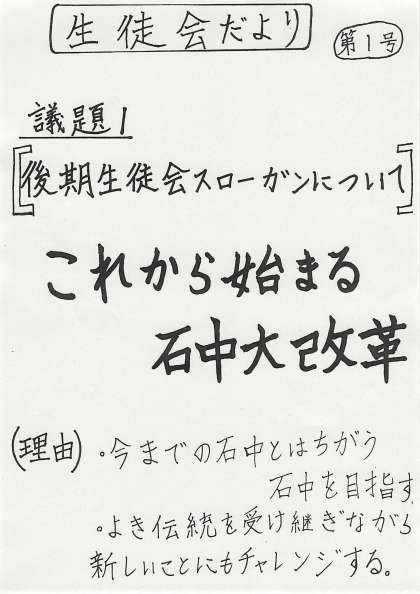 生徒会だより
第1号
議題1
後期生徒会スローガンについて
これから始まる
石中大改革
(理由)・今までの石中とはちがう
石中を目指す
・よき伝統を受け継ぎながら
新しいことにもチャレンジする。